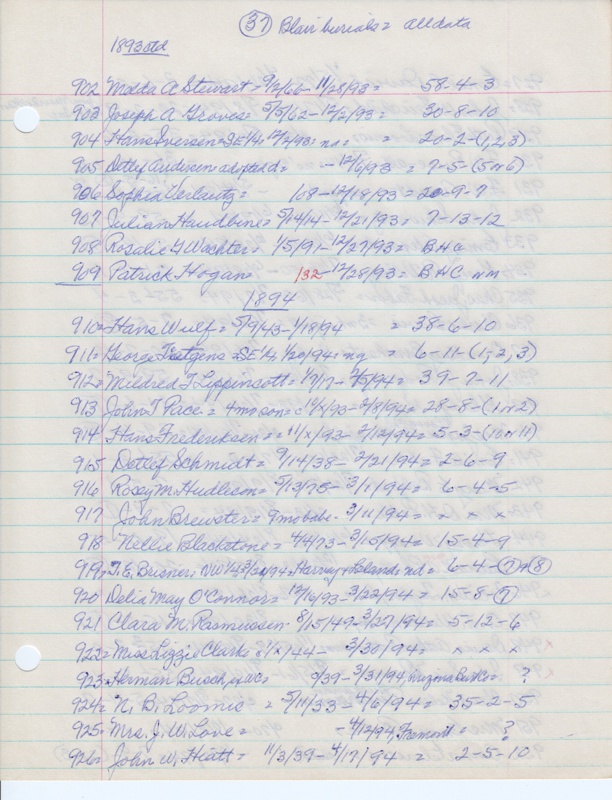 (37) Blair burials = all data
1893 ctd
902 Malda A Stewart = 9/2/66 - 11/28/93 = 58-4-3
903 Joseph A Groves = 5/5/62 - 12/2/93 = 30-8-10
904 Hans Iversen = SE 1/4; 12/2/93 = = 20-2-(1,2,3)
905 Detlef Andersen adopted = - 12/6/93 = 7-5-(5 or 6)
906 Sophia = 108 - 12/18/93 = 20-9-7
907 Julian = 5/14/14 - 12/21/93 = 7-13-12
908 Rosalie G Wachter = 1/5/91 - 12/27/93 = BHC
909 Patrick Hogan = 1/32 - 12/28/93 = BHC nm
1894
910 = Hans Wulf = 5/9/43 - 1/18/94 = 38-6-10
911 = George = SE 1/4; 1/20/94 = = 6-11-(1,2,3)
912 = Mildred F Lippincott = 1/7/17 - 2/5/94 = 39-7-11
913 John T Pace = 4 mo son = c 11/x/93 - 2/8/94 = 28-8-(1 or 2)
914 Hans Frederiksen = c 11/x/93 - 2/12/94 = 5-3-(10 or 11)
915 Detlef Schmidt = 9/14/38 - 2/21/94 = 2-6-9
916 Rosey M. Hudleson = 9/13/75 - 3/1/94 = 6-4-5
917 John Brewster = 9 mo babe - 3/11/94 = x x x
918 Nellie Blackstone = 4/4/73 - 3/15/94 = 15-4-9
919 = J. E. Brisner; NW 1/4; 3/20/94, Harvey + Leland = 6-4-(7) or (8)
920 Delia May O'Connor = 12/16/93 - 3/22/94 = 15-8-(7)
921 Clara M. Rasmussen - 8/15/49 - 3/27/94 = 5-12-6
922 = Miss Lizzie Clark = 1/x/44 - 3/30/94 = x x x
923 = Herman Busch, = 9/39 - 3/31/94, = ?
924 = N. B. Loomis = 5/11/33 - 4/6/94 = 35-2-5
925 = Mrs. J. W. Love = - 4/12/94, Fremont = ?
926 = John W. Hiatt = 11/3/39 - 4/17/94 = 2-5-10